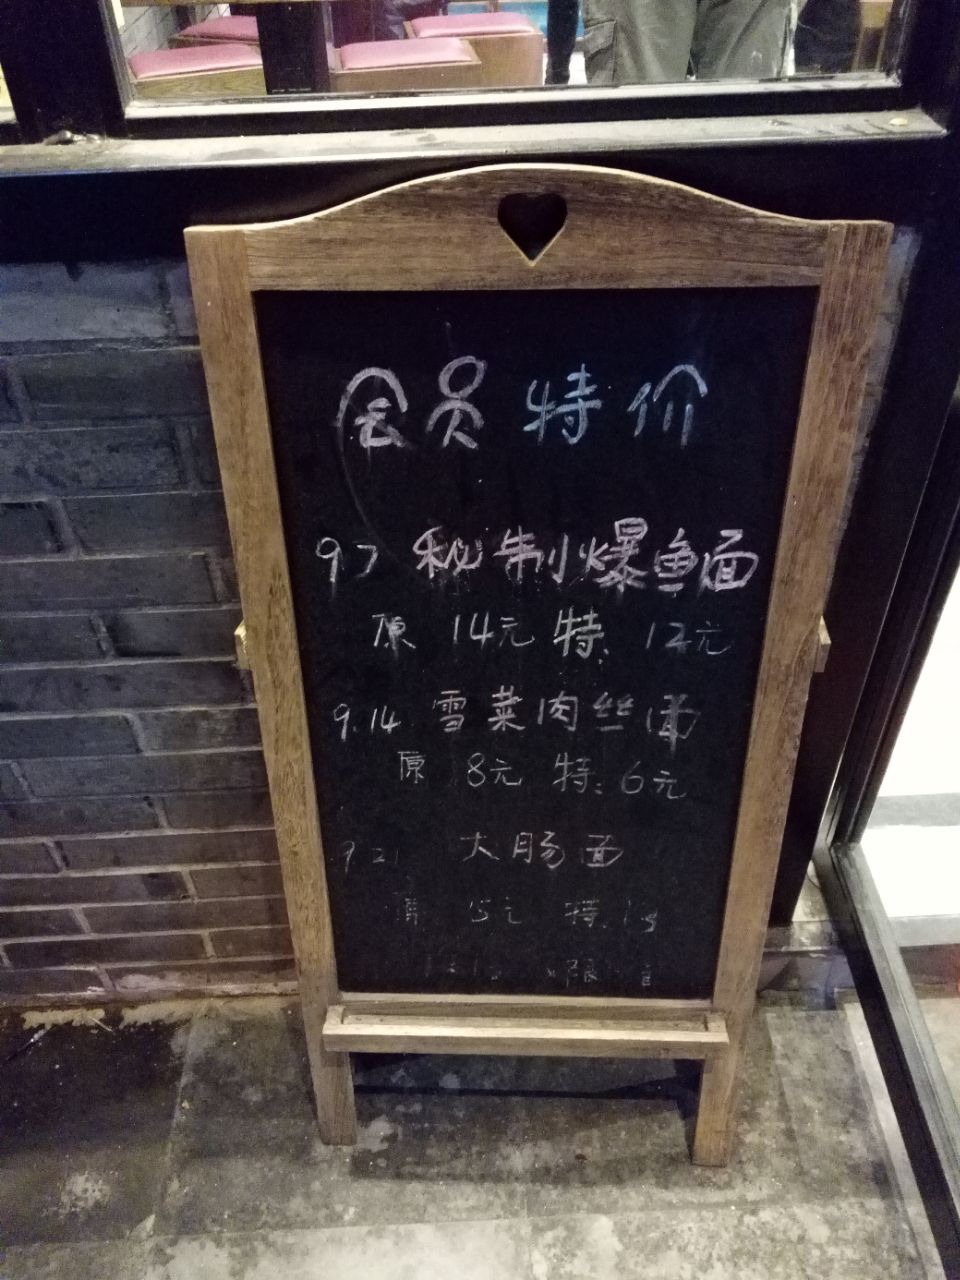 会员特价
9.7 秘制爆鱼面
原 14元 特: 12元
9.14 雪菜肉丝面
原 8元 特: 6元
9 21 大肠面
原 15元 特: 13
限